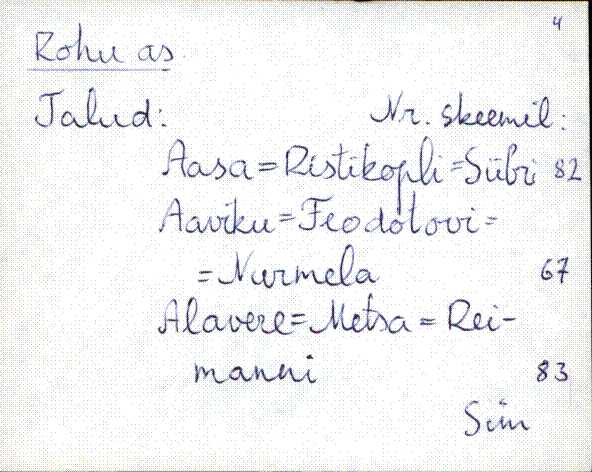 4
Rohu as.
Talud: Nr. skeemil:
Aasa=Ristikopli=Sübi 82
Aaviku=Feodotovi=
=Nurmela 67
Alavere=Metsa=Rei-
manni 83
Sim